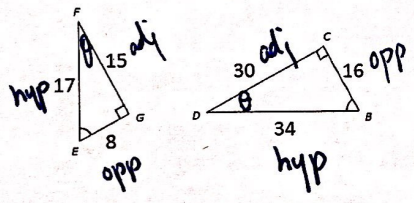 F
θ
15 adj
hyp 17
G
E
8
opp
C
adj
30
16 opp
θ
D
B
34
hyp